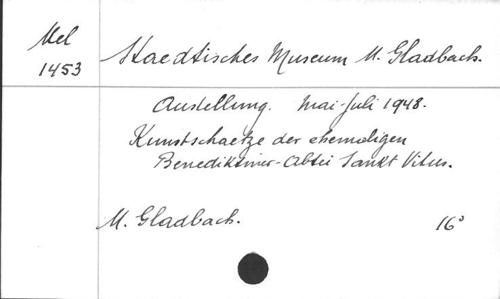 Mel
1453
Staedtisches Museum M. Gladbach.
Austellung. Mai-Juli 1948.
Kunstschaetze der ehemaligen
Benediktiner-Abtei Sankt Vitus.
M. Gladbach. 16°